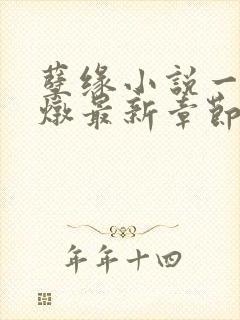 孽缘小説一
燉最新章節
年年十四